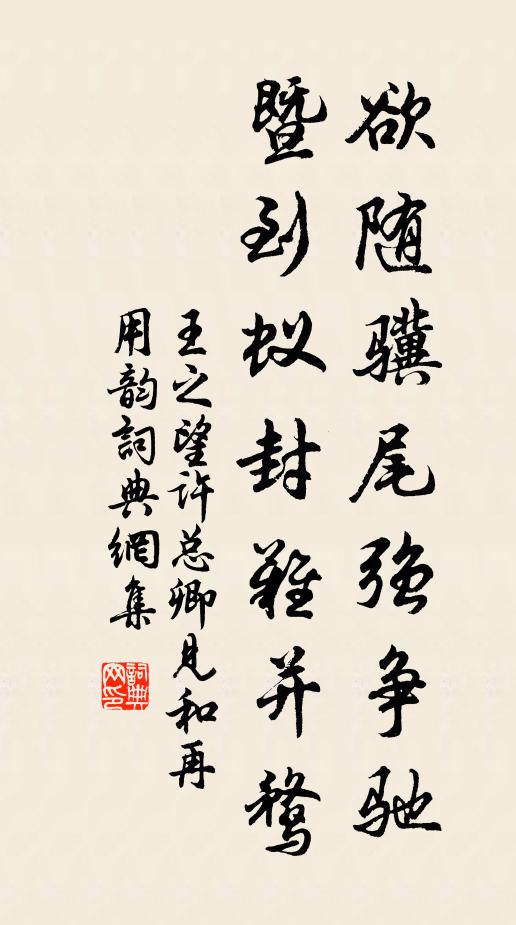 欲随骥尾强争驰
暨到蚁封难并鹜
王之望许总卿见和再
用韵詞典網集
詞典网印